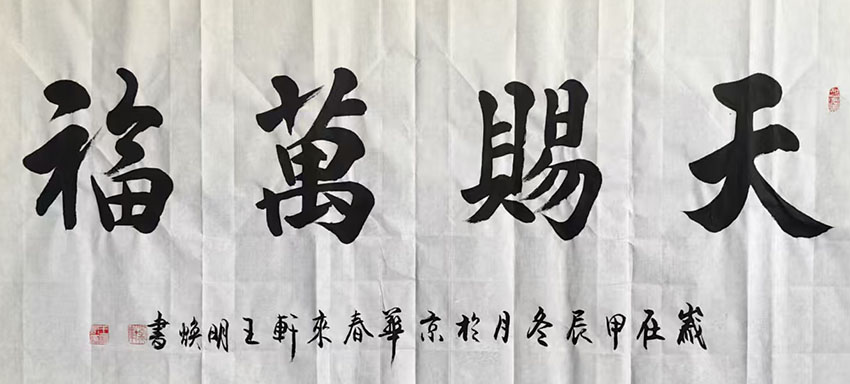 天賜萬福
歲在甲辰冬月於京華春來軒王明煥書